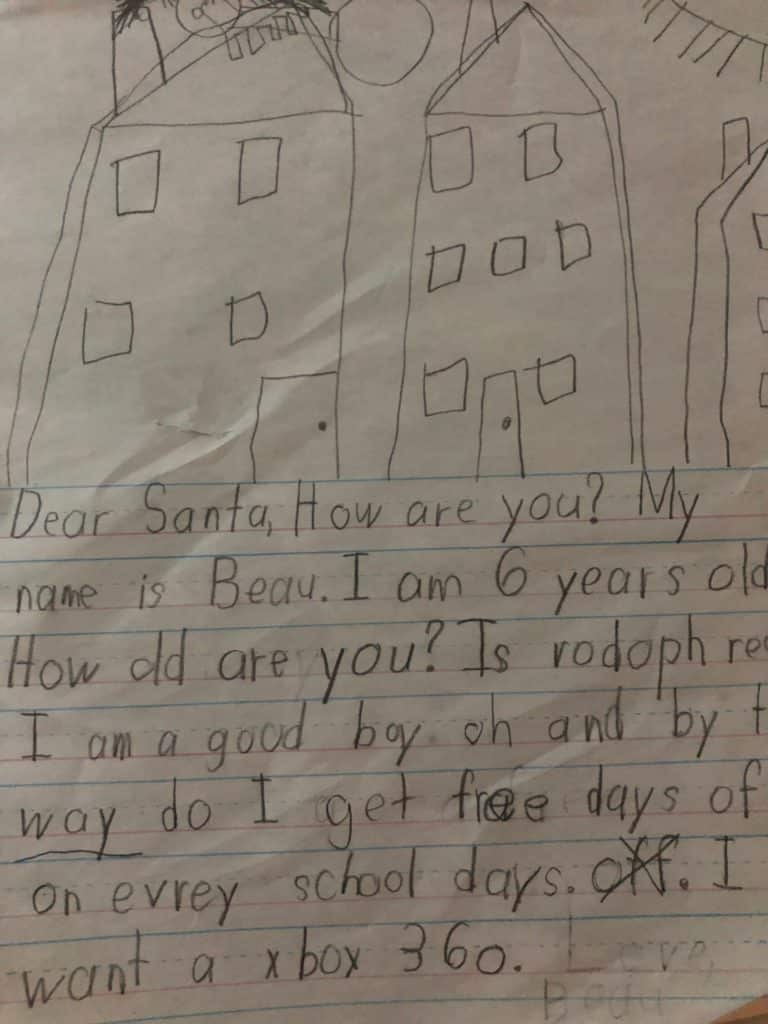 Dear Santa, How are you? My
name is Beau. I am 6 years old
How old are you? Is rodoph
I am a good boy oh and by
way do I get free days of
on evrey school days. off. I
want a xbox 360. Love,
Beau